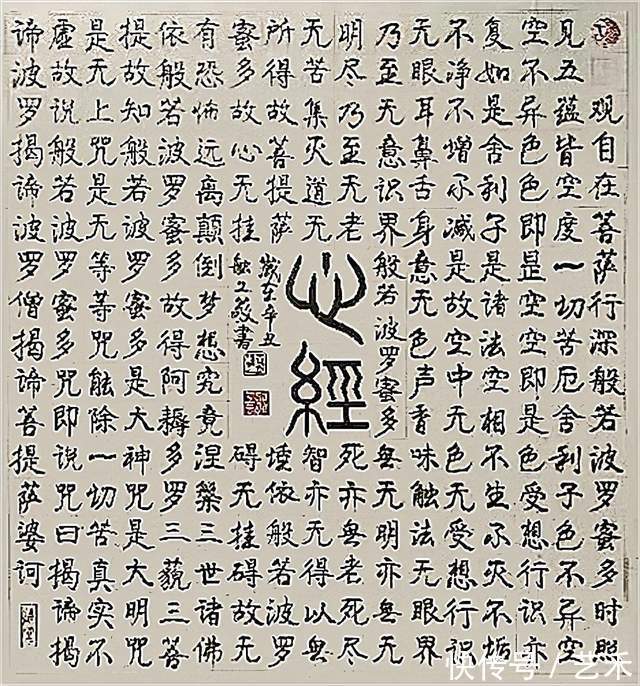 观自在菩萨行深般若波罗蜜多时照
见五蕴皆空度一切苦厄舍利子色不异空
空不异色色即是空空即是色受想行识亦
复如是舍利子是诸法空相不生不灭不垢
不净不增不减是故空中无色无受想行识
无眼耳鼻舌身意无色声香味触法无眼界
乃至无意识界
無无明亦無无
明尽乃至无老
死亦無老死尽
无苦集灭道无
智亦无得以無
所得故菩提萨
埵依般若波罗
蜜多故心无挂
碍无挂碍故无
有恐怖远离颠倒梦想究竟涅槃三世诸佛
依般若波罗蜜多故得阿耨多罗三藐三菩
提故知般若波罗蜜多是大神咒是大明咒
是无上咒是无等等咒能除一切苦真实不
虚故说般若波罗蜜多咒即说咒曰揭谛揭
谛波罗揭谛波罗僧揭谛菩提萨婆诃
般若波罗蜜多
心經
岁在辛丑
敬書
快传号/艺禾